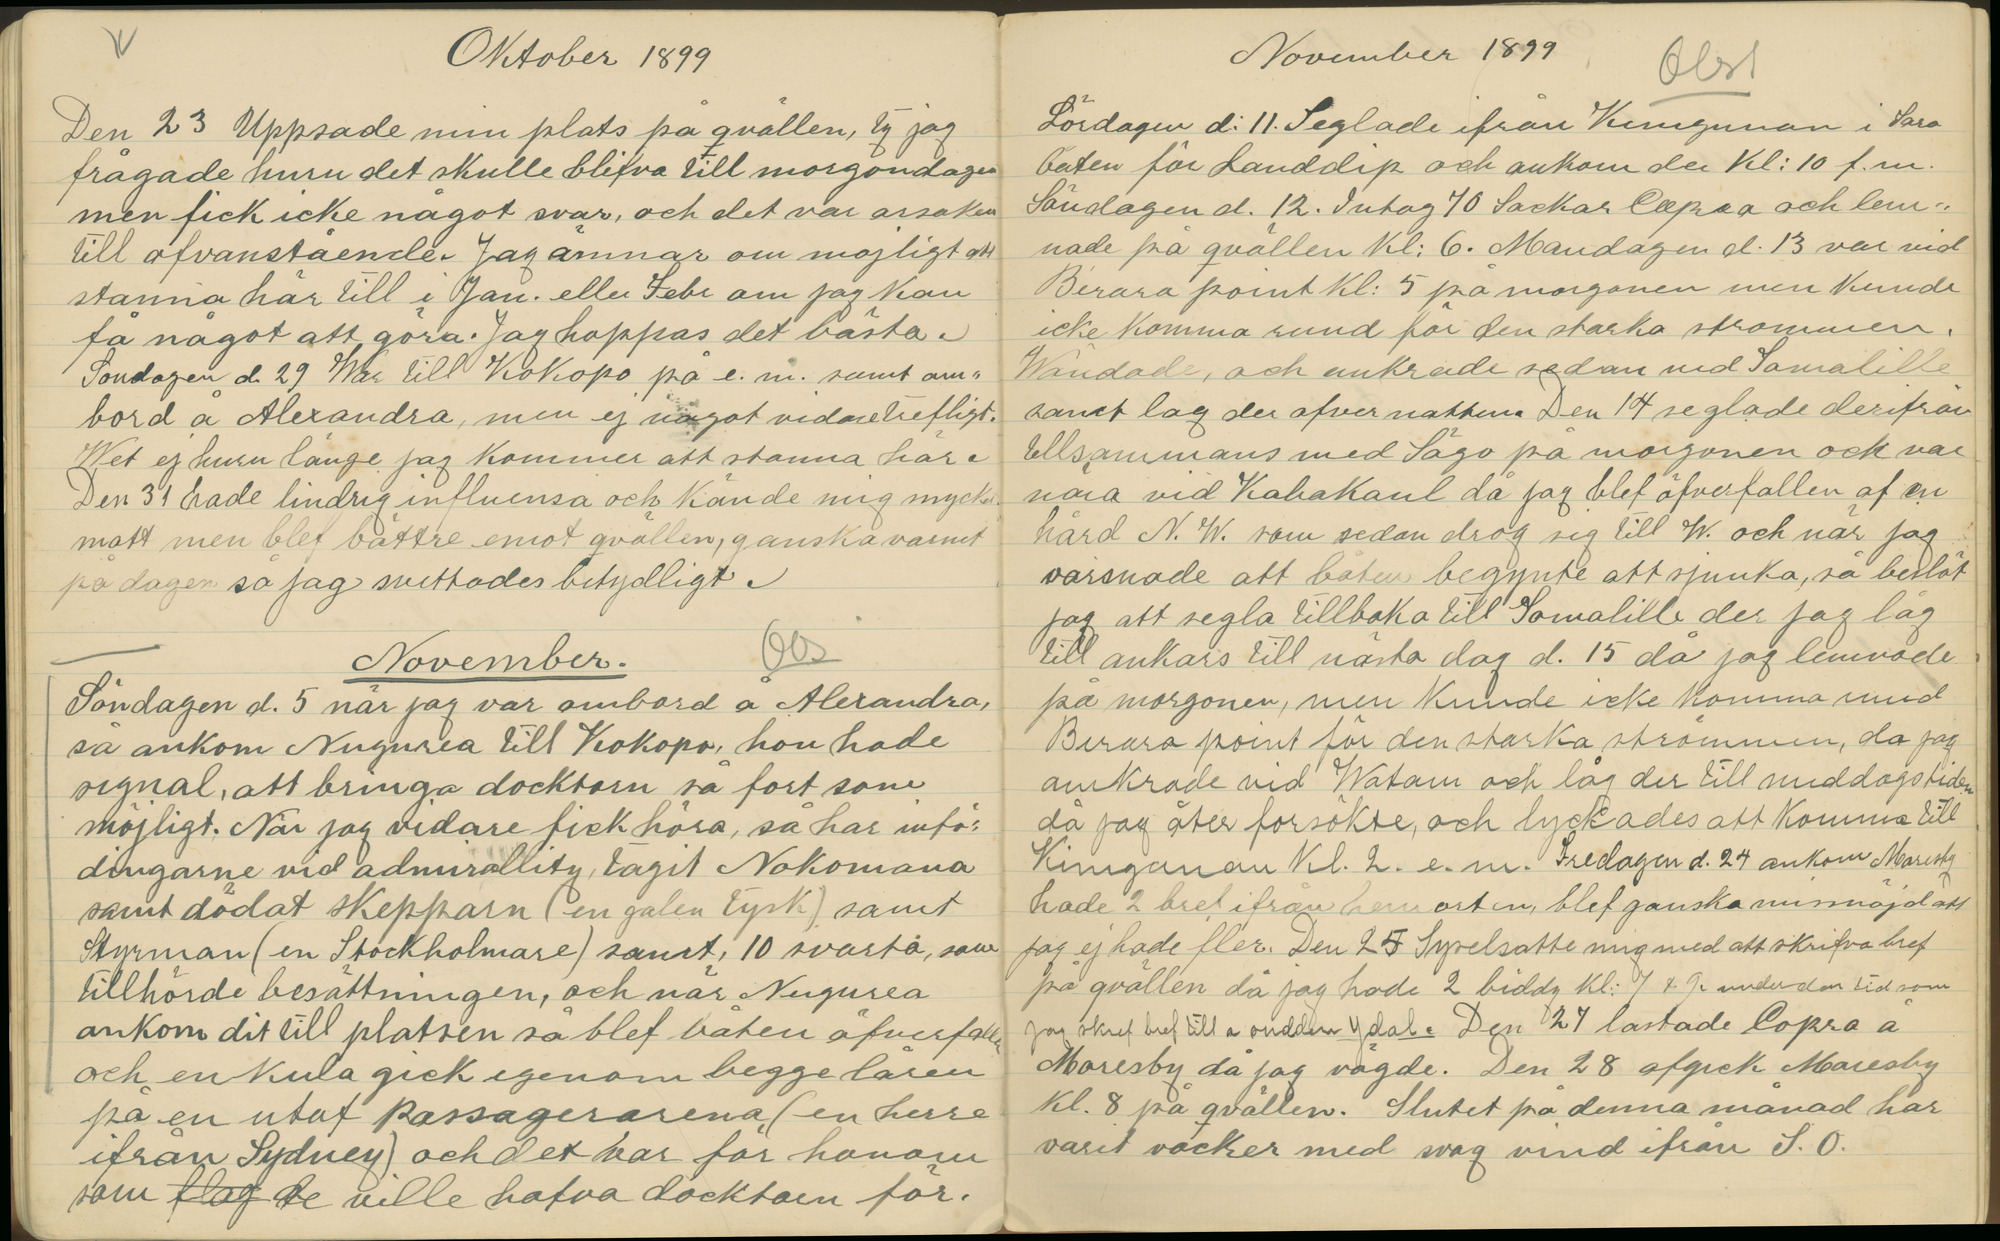 Oktober 1899
Den 23 Uppsade min plats på qvällen, ty jag
frågade huru det skulle blifva till morgondagen
men fick icke något svar, och det var orsaken
till ofvanstående. Jag ämnar om möjligt att
stanna här till i Jan. eller Febr om jag kan
få något att göra. Jag hoppas det bästa.
Söndagen d. 29 War till Kokopo på e. m. samt om„
bord å Alexandra, men ej något vidare trefligt.
Wet ej huru länge jag kommer att stanna här.
Den 31 hade lindrig influensa och kände mig mycket
matt men blef bättre emot qvällen, ganska varmt
på dagen så jag svettades betydligt.
November.
Obs
Söndagen d. 5 när jag var ombord å Alexandra,
så ankom Nugurea till Kokopo, hon hade
signal, att bringa docktorn så fort som
möjligt. När jag vidare fick höra, så har infö:
dingarne vid admirallity, tagit Nokomana
samt dödat skepparn (en galen tysk) samt
Styrman (en Stockholmare) samt, 10 svarta, som
tillhörde besättningen, och när Nugurea
ankom dit till platsen så blef båten öfverfallen
och en kula gick egenom begge låren
på en utaf passagerarena (en herre
ifrån Sydney) och det var för honom
som flag de ville hafva docktorn för.
November 1899
Obs!
Lördagen d: 11. Seglade ifrån Kinigunan i Sara
båten för Landdip och ankom der Kl: 10 f. m.
Söndagen d. 12. Intog 70 Sackar Copra och lem„
nade på qvällen Kl: 6. Mandagen d. 13 var vid
Birara point Kl: 5 på morgonen men kunde
icke komma rund för den starka strommen.
Wändade, och ankrade sedan vid Tomalille
samt lag der öfver natten. Den 14 seglade derifrån
tillsammans med Sägo på morgonen och var
nära vid Kabakaul då jag blef öfverfallen af en
hård N. W. som sedan drog sig till W. och när jag
varsnade att båten begynte att sjunka, så beslöt
jag att segla tillbaka till Tomalille der jag låg
till ankars till nästa dag d. 15 då jag lemnade
på morgonen, men kunde icke komma rund
Birara point för den starka strömmen, då jag
ankrade vid Watam och låg der till middagstiden
då jag åter försökte, och lyckades att komma till
Kinigunan Kl. 2. e. m. Fredagen d. 24 ankom Moresby
hade 2 bref ifrån hemorten, blef ganska missnöjd att
jag ej hade fler. Den 25 Sysselsatte mig med att skrifva bref
på qvällen då jag hade 2 biddy Kl: 7 & 9. under den tid som
jag skref bref till Ydal. Den 27 lastade Copra å
Moresby då jag vägde. Den 28 afgick Moresby
Kl. 8 på qvällen. Slutet på denna månad har
varit vacker med svag vind ifrån S. O.